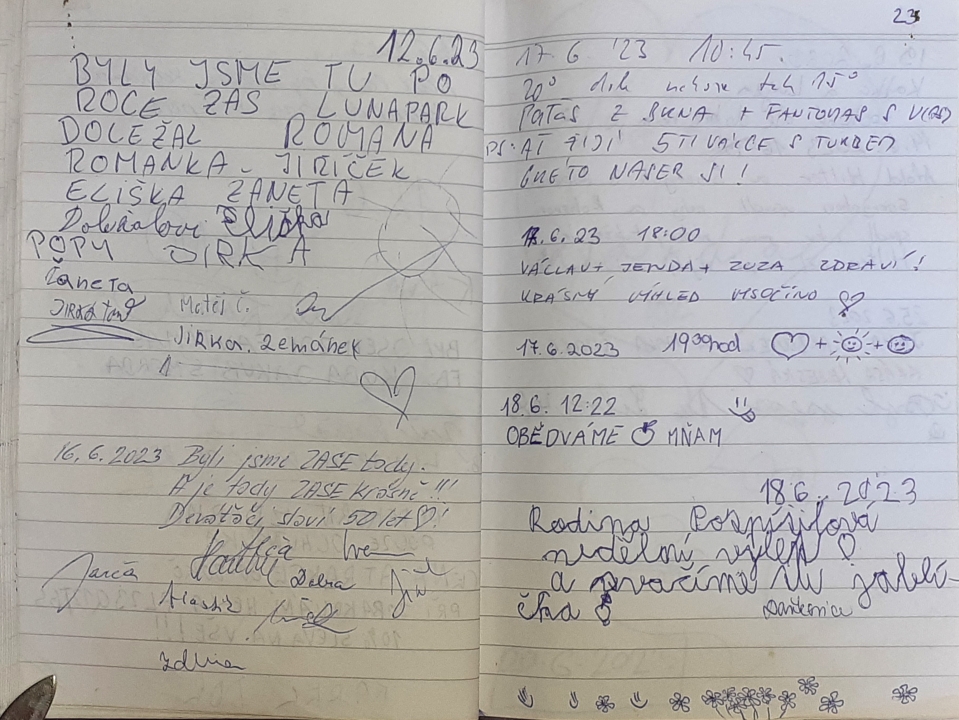 12.6.23
BYLY JSME TU PO
ROCE ZAS LUNAPARK
DOLEŽAL ROMANA
ROMANKA - JIŘÍČEK
ELIŠKA ŽANETA
Eliška
POPY JIRKA
Žaneta
Matěj Č.
JiRKa. Zemánek
16.6.2023 Byli jsme ZASE tady.
A je tady ZASE krásně!!!
Deváťáci slaví 50 let!
Jarča
Iva
Zdena
23
17.6 '23 10:45.
20° dole nahoře tak 15°
PAŤAS Z BRNA + FANTOMAS S
PS: AŤ ŽIJÍ 5TI VÁLCE S TURBEM
GRÉTO NASER SI!
17.6.23 18:00
VÁCLAV + JENDA + ZUZA ZDRAVÍ!
KRÁSNÝ VÝHLED VYSOČINO
17.6.2023 19:00 hod + +
18.6. 12:22
OBĚDVÁME MŇAM
18.6. 2023
Rodina Pospíšilová
nedělní výlet
a svačíme tu jablí-
čka